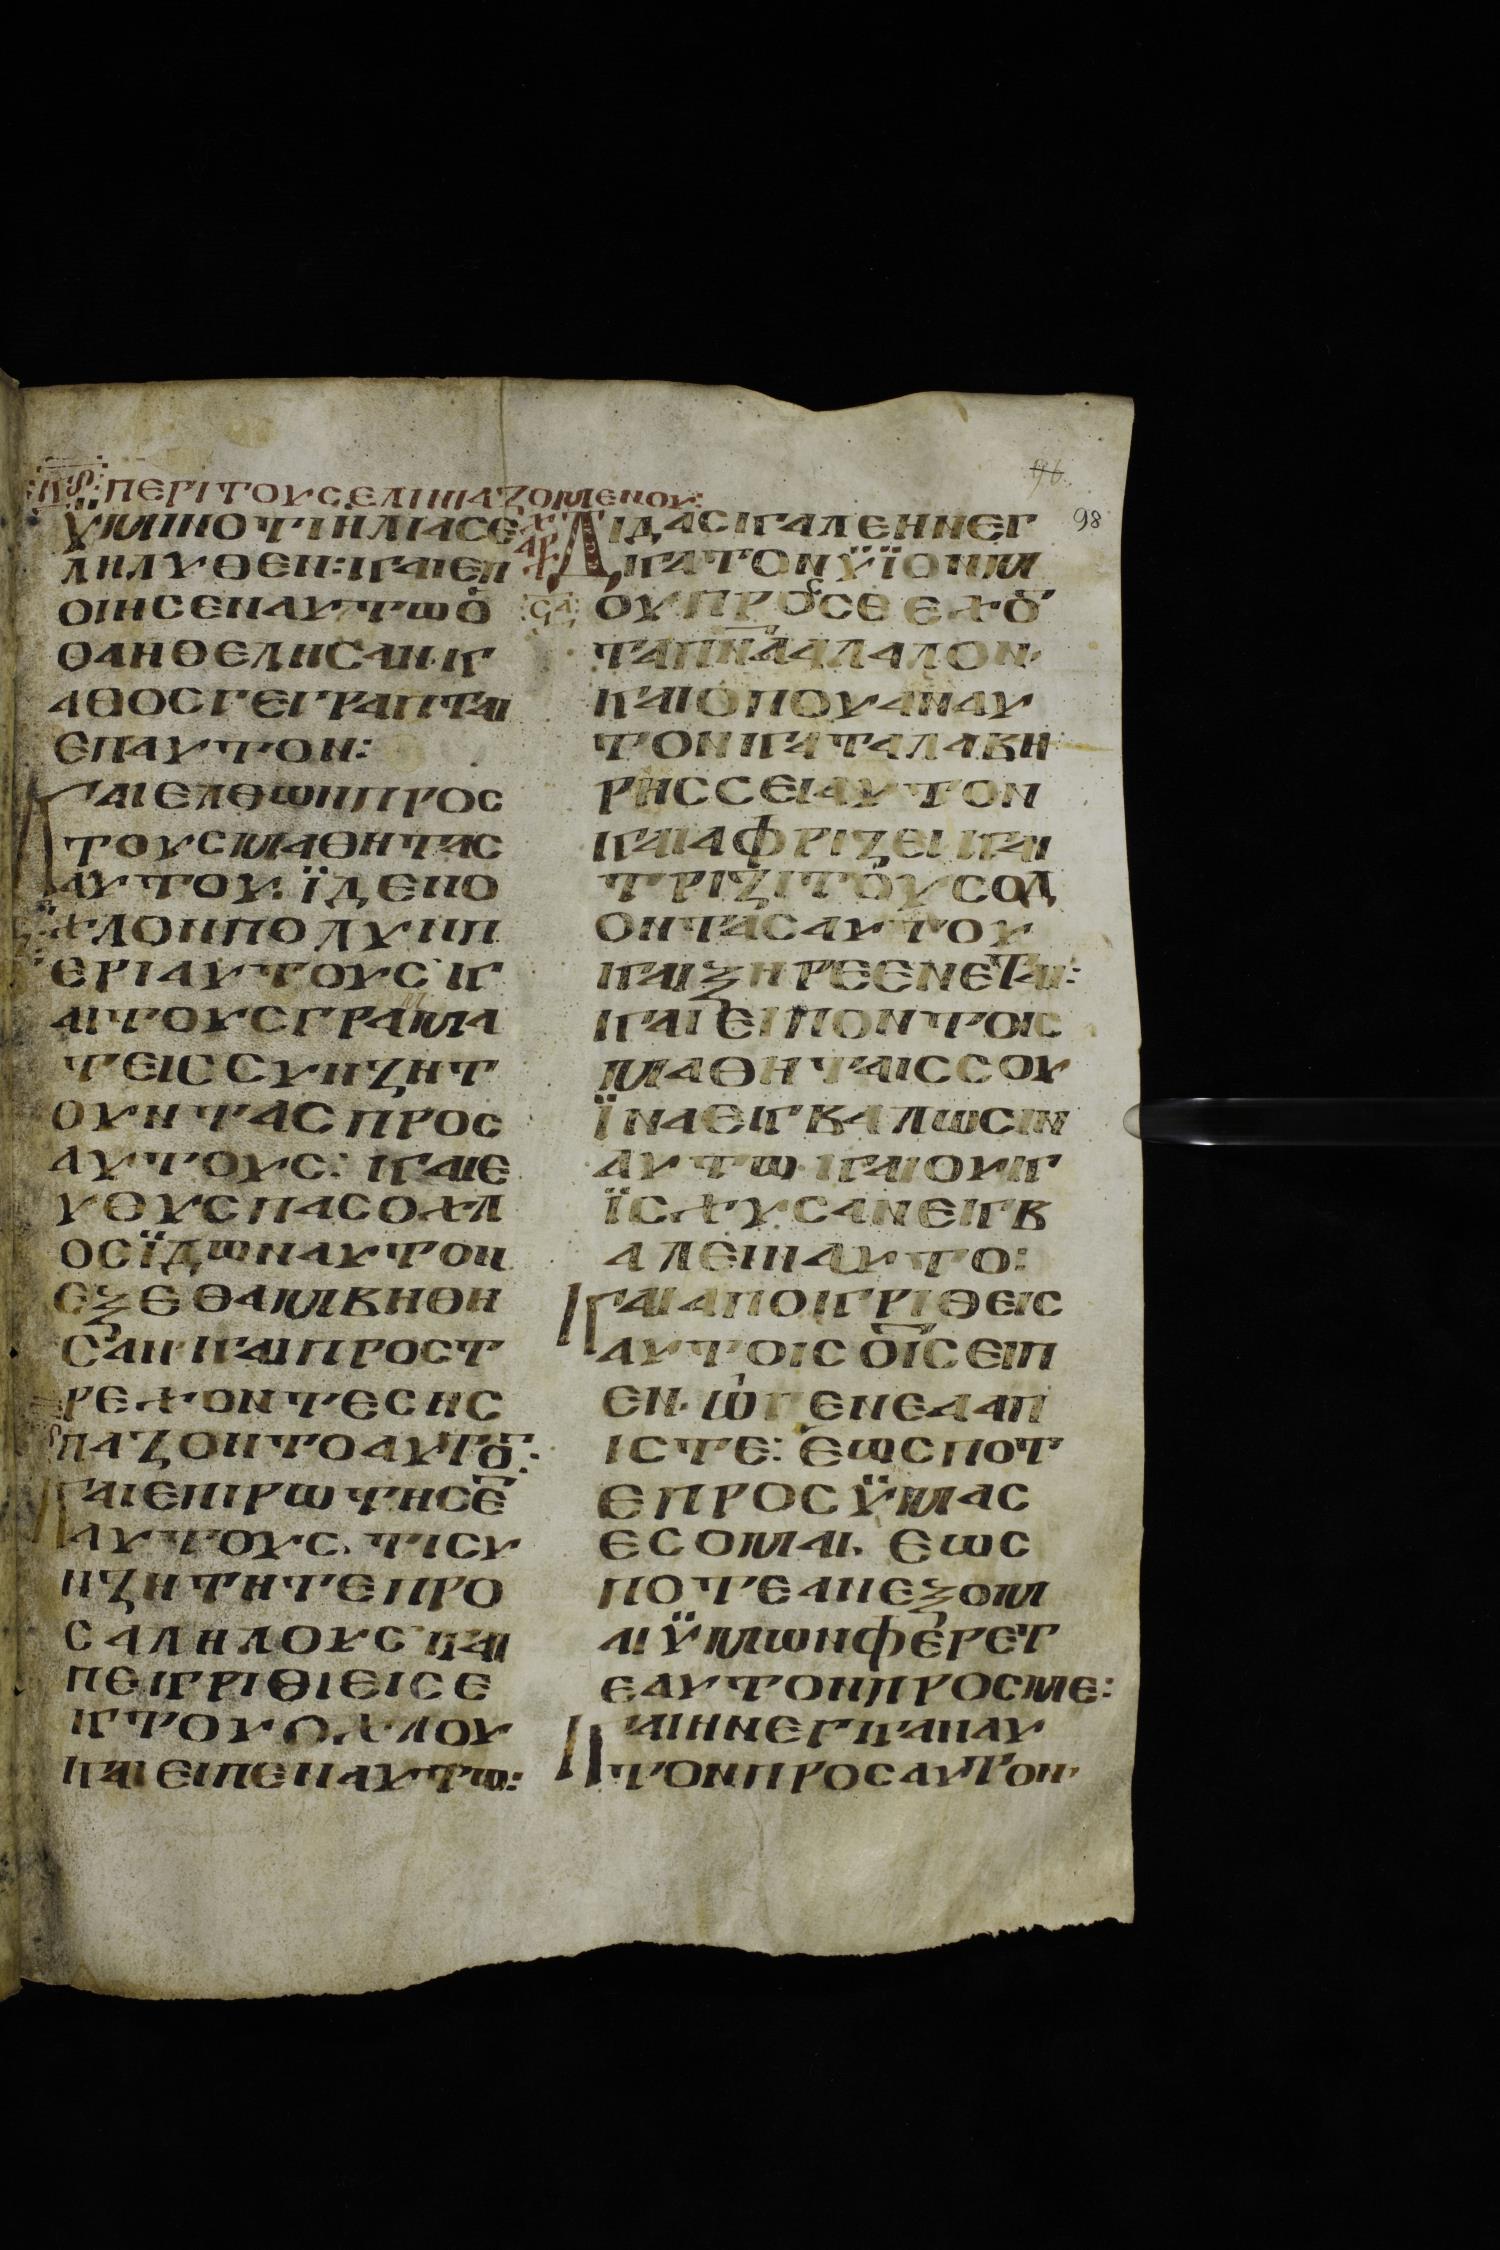 ΠΕΡΙ ΤΟΥ ΣΕΛΙΝΙΑΖΟΜΕΝΟΥ:
ΫΜΙΝΟΤΙΗΛΙΑСΕ
ΛΗΛΥΘΕΝ:ΚΑΙΕΠ
ΟΙΗСΕΝΑΥΤΩΟ
ΟΑΗΘΕΛΗСΑΝ·Κ
ΑΘΟСΓΕΓΡΑΠΤΑΙ
ΕΠΑΥΤΟΝ:
ΚΑΙΕΛΘΩΝΠΡΟС
ΤΟΥСΜΑΘΗΤΑС
ΑΥΤΟΥ:ΪΔΕΝΟ
ΧΛΟΝΠΟΛΥΝΠ
ΕΡΙΑΥΤΟΥС Κ
ΑΙΤΟΥСΓΡΑΜΜΑ
ΤΕΙССΥΝΖΗΤ
ΟΥΝΤΑСΠΡΟС
ΑΥΤΟΥС:ΚΑΙΕ
ΥΘΥСΠΑСΟΧΛ
ΟСΪΔΩΝΑΥΤΟΝ
ΕΞΕΘΑΜΒΗΘΗ
СΑΝ·ΚΑΙΠΡΟСΤ
ΡΕΧΟΝΤΕСΗС
ΠΑΖΟΝΤΟΑΥΤΟ̅:
ΚΑΙΕΠΙΡΩΤΗСΕ̅
ΑΥΤΟΥС·ΤΙСΥ
ΝΖΗΤΗΤΕΠΡΟ
СΑΛΗΛΟΥС ΚΑΙ
ΠΕΚΡΙΘΙΕΙСΕ
ΚΤΟΥΟΧΛΟΥ
ΚΑΙΕΙΠΕΝΑΥΤΩ:
ΔΙΔΑСΚΑΛΕΗΝΕΓ
ΚΑΤΟΝΫΪΟΝΜ
ΟΥΠΡΟССΕΕΧΟ̅
ΤΑΠΝ̅ΑΑΛΑΛΟΝ·
ΚΑΙΟΠΟΥΑΝΑΥ
ΤΟΝΚΑΤΑΛΑΒΗ
ΡΗССΕΙΑΥΤΟΝ
ΚΑΙΑΦΡΙΖΕΙΚΑΙ
ΤΡΙΖΙΤΟΥСΟΔ
ΟΝΤΑСΑΥΤΟΥ
ΚΑΙΞΗΡΕΕΝΕΤΑΙ:
ΚΑΙΕΙΠΟΝΤΟΙС
ΜΑΘΗΤΑΙССΟΥ
ΪΝΑΕΚΒΑΛΩСΙΝ
ΑΥΤΩ·ΚΑΙΟΥΚ
ΪСΧΥСΑΝΕΚΒ
ΑΛΕΙΝΑΥΤΟ:
ΚΑΙΑΠΟΚΡΙΘΕΙС
ΑΥΤΟΙСΟΙ̅СΕΙΠ
ΕΝ·ΩΓΕΝΕΑΑΠ
ΙСΤΕ:ΕΩСΠΟΤ
ΕΠΡΟСΫΜΑС
ΕСΟΜΑΙ·ΕΩС
ΠΟΤΕΑΝΕΞΟΜ
ΑΙΫΜΩΝΦΕΡΕΤ
ΕΑΥΤΟΝΠΡΟСΜΕ:
ΚΑΙΗΝΕΓΚΑΝΑΥ
ΤΟΝΠΡΟСΑΥΤΟΝ·
96
98